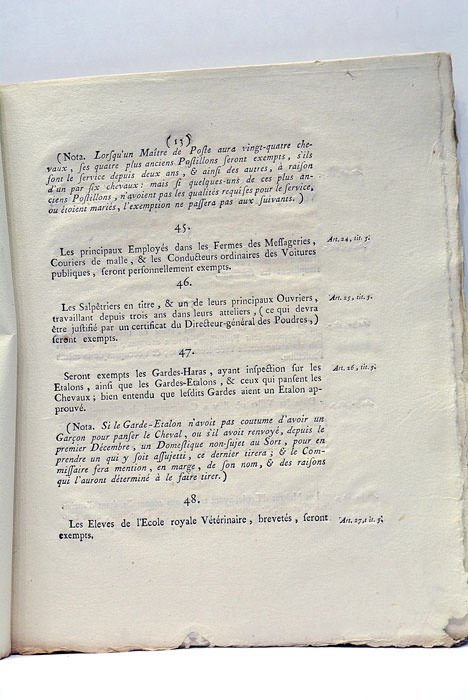 (13)
(Nota. Lorſqu'un Maître de Poſte aura vingt-quatre che-
vaux, ſes quatre plus anciens Poſtillons ſeront exempts, s'ils
ſont le ſervice depuis deux ans, & ainſi des autres, à raiſon
d'un par ſix chevaux: mais ſi quelques-uns de ces plus an-
ciens Poſtillons, n'avoient pas les qualités requiſes pour le ſervice,
ou étoient mariés, l'exemption ne paſſera pas aux ſuivants.)
45.
Les principaux Employés dans les Fermes des Meſſageries, Art. 24, tit. 5.
Couriers de malle, & les Conducteurs ordinaires des Voitures
publiques, ſeront perſonnellement exempts.
46.
Les Salpêtriers en titre, & un de leurs principaux Ouvriers, Art. 25, tit. 5.
travaillant depuis trois ans dans leurs atteliers, (ce qui devra
être juſtifié par un certificat du Directeur-général des Poudres,)
ſeront exempts.
47.
Seront exempts les Gardes-Haras, ayant inſpection ſur les Art. 26, tit. 5.
Etalons, ainſi que les Gardes-Etalons, & ceux qui panſent les
Chevaux; bien entendu que leſdits Gardes aient un Etalon ap-
prouvé.
(Nota. Si le Garde-Etalon n'avoit pas coutume d'avoir un
Garçon pour panſer le Cheval, ou s'il avoit renvoyé, depuis le
premier Décembre, un Domeſtique non-ſujet au Sort, pour en
prendre un qui y ſoit aſſujetti, ce dernier tirera; & le Com-
miſſaire fera mention, en marge, de ſon nom, & des raiſons
qui l'auront déterminé à le faire tirer.)
48.
Les Eleves de l'Ecole royale Vétérinaire, brevetés, ſeront Art. 27, tit. 5.
exempts.